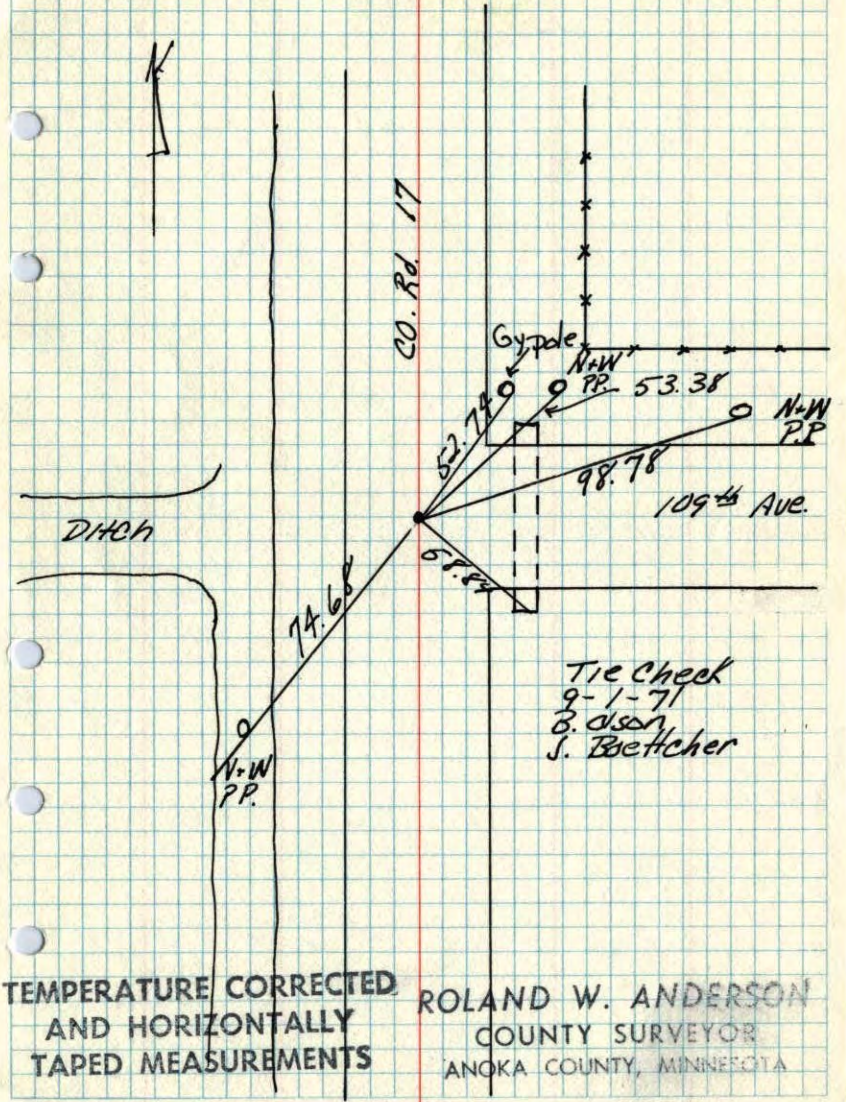 N
CO. Rd. 17
Gypole
N+W
PP.
53.38
N+W
P.P
52.74
98.78
109th Ave.
Ditch
74.68
Tie Check
9-1-71
B. Olson,
J. Boettcher
N+W
PP.
TEMPERATURE CORRECTED
AND HORIZONTALLY
TAPED MEASUREMENTS
ROLAND W. ANDERSON
COUNTY SURVEYOR
ANOKA COUNTY, MINNESOTA